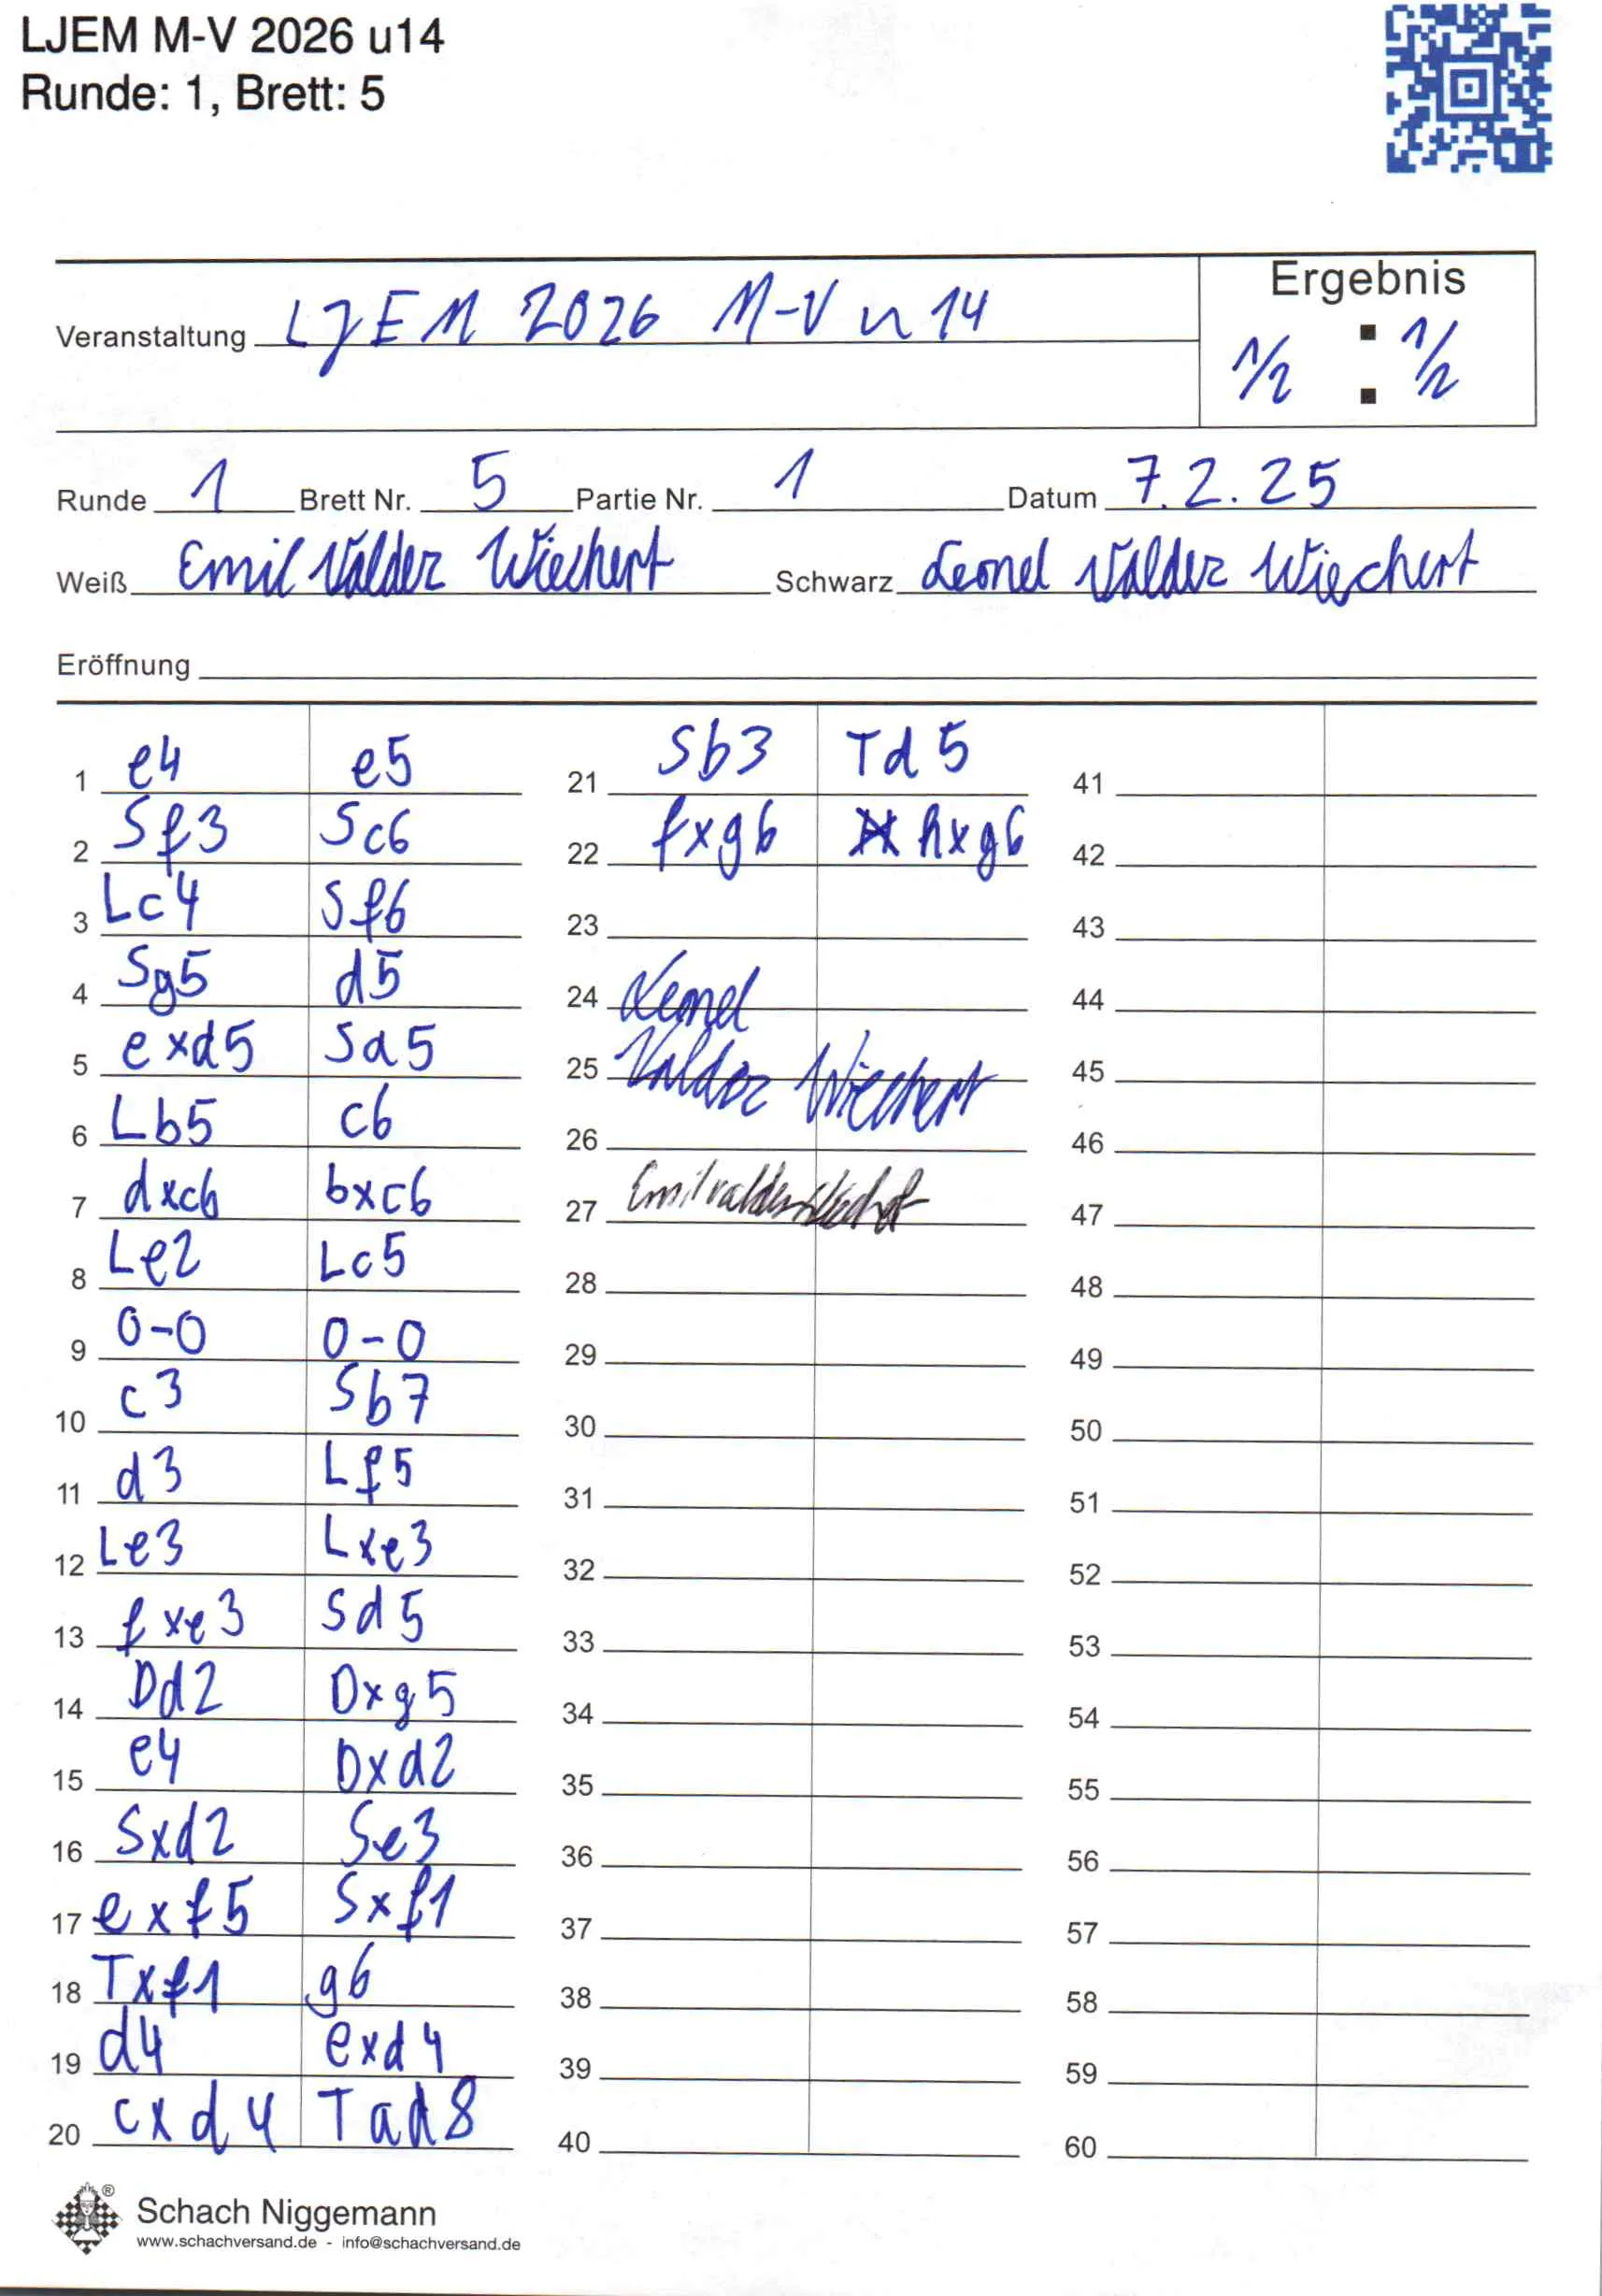 LJEM M-V 2026 u14
Runde: 1, Brett: 5
Ergebnis
Veranstaltung LJEM 2026 M-V u14
1/2 : 1/2
Runde 1 Brett Nr. 5 Partie Nr. 1 Datum 7.2.25
Weiß Emil Valdez Wiechert Schwarz Leonel Valdez Wiechert
Eröffnung
1 e4 e5
2 Sf3 Sc6
3 Lc4 Sf6
4 Sg5 d5
5 exd5 Sa5
6 Lb5 c6
7 dxc6 bxc6
8 Le2 Lc5
9 0-0 0-0
10 c3 Sb7
11 d3 Lf5
12 Le3 Lxe3
13 fxe3 Sd5
14 Dd2 Dxg5
15 e4 Dxd2
16 Sxd2 Se3
17 exf5 Sxf1
18 Txf1 g6
19 d4 exd4
20 cxd4 Tad8
21 Sb3 Td5
22 fxg6 hxg6
23
24 Leonel
25 Valdez Wiechert
26
27 Emil Valdez Wiechert
28
29
30
31
32
33
34
35
36
37
38
39
40
41
42
43
44
45
46
47
48
49
50
51
52
53
54
55
56
57
58
59
60
Schach Niggemann
www.schachversand.de - info@schachversand.de